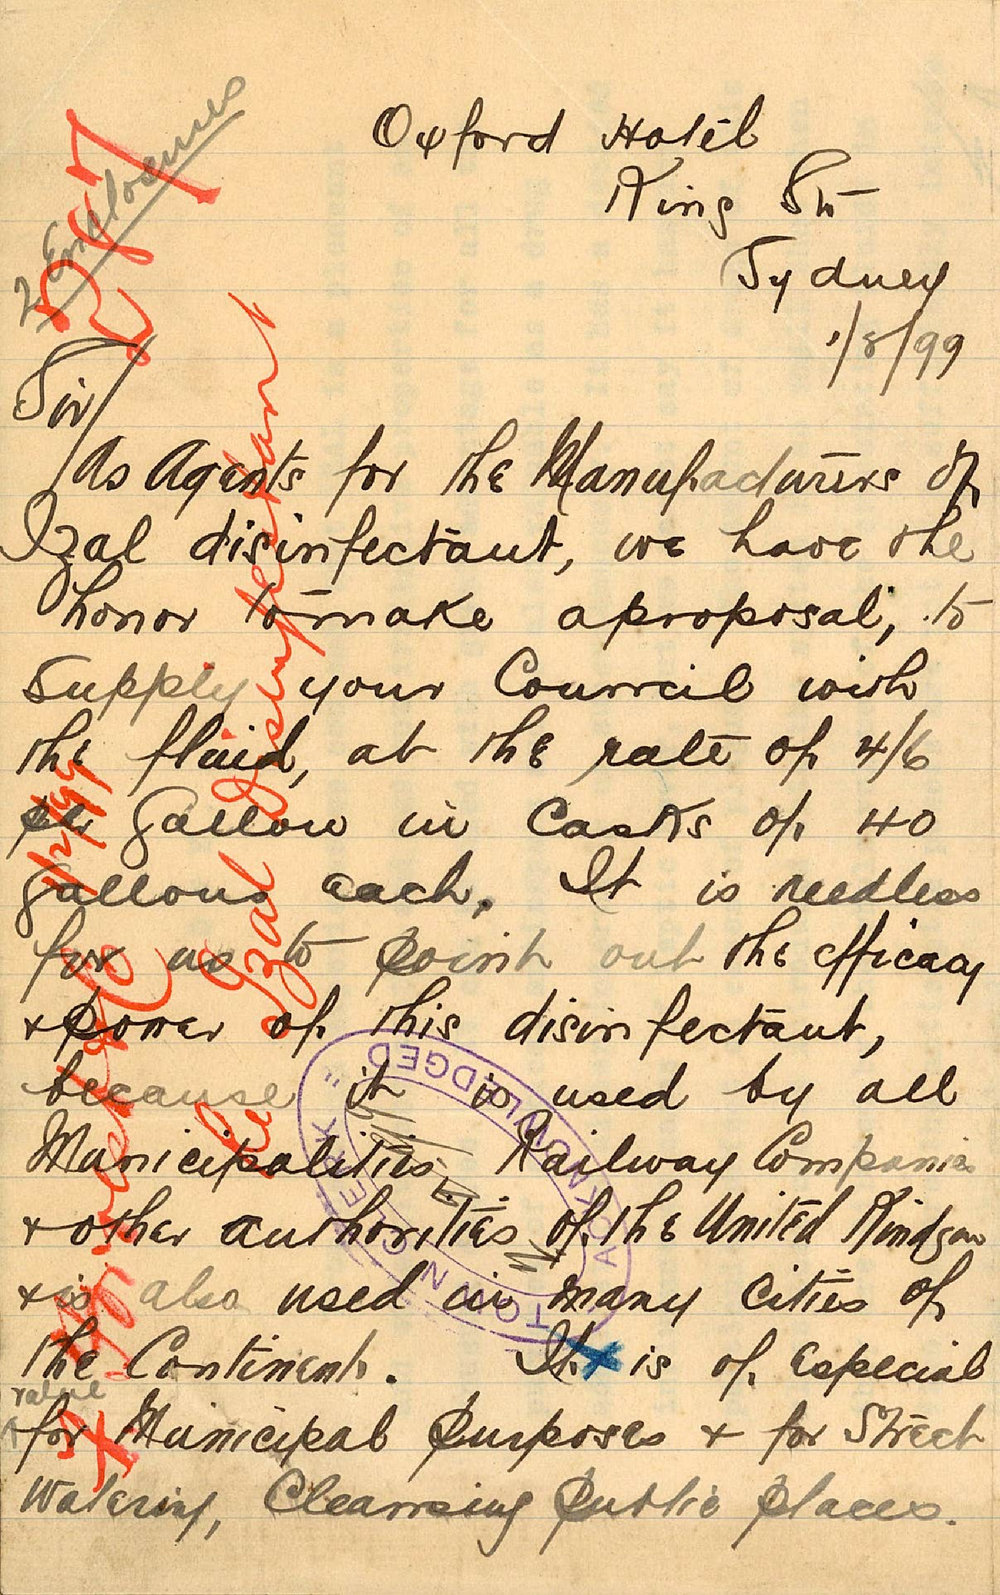 2 Enclosures
Oxford Hotel
King St
Sydney
1/8/99
Sir/
As Agents for the Manufacturers of
Izal disinfectant, we have the
honor to make a proposal, to
supply your Council with
the fluid, at the rate of 4/6
per gallon in Casks of 40
gallons each. It is needless
for us to point out the efficacy
& power of this disinfectant,
because it is used by all
Municipalities, Railway Companies
& other authorities of the United Kindgom
& is also used in many cities of
the Continent. It is of especial
value
for Municipal Purposes & for Street
Watering, Cleansing Public places.
Re Izal Disinfectant
TOWN CLERK
ACKNOWLEDGED